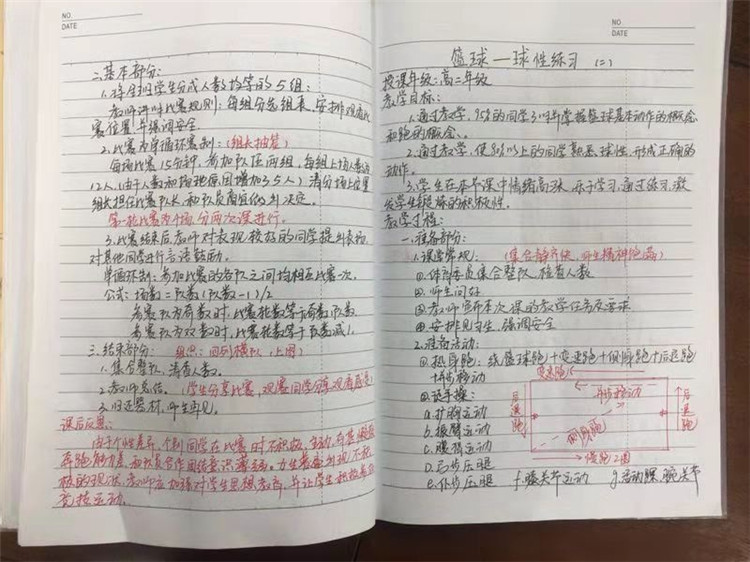 NO.
DATE
二、基本部分：
1.将全班学生分成人数均等的5组：
教师讲明比赛规则：每组分选组长，安排观看比
赛位置并强调安全
2.比赛为单循环赛制：(组长抽签)
每场比赛15分钟，参加队伍两组，每组上场人数
12人(由于人数和场地原因增加35人)
组长担任比赛队长，和队员商定
第一轮比赛为个场，分两次课进行。
3.比赛结束后，教师对表现较好的同学提出表扬，
对其他同学进行言语鼓励。
单循环制：参加比赛的各队之间均相互比赛一次。
公式：场数=队数(队数-1)/2
若赛队为奇数时，比赛轮数等于奇数队数
若赛队为双数时，比赛轮数等于队数减1。
三、结束部分：组织：四列横队，(上图)
1.集合整队，清查人数。
2.教师总结。(学生分享比赛，观赛同学分享观看感受)
3.归还器材，师生再见。
课后反思：
由于个性差异，个别同学在比赛时不积极、主动，
奔跑能力差，和队员合作团结意识薄弱。
极的现象，教师应加强对学生思想教育，并让学生积极参与
竞技运动。
NO.
DATE
篮球—球性练习(二)
授课年级：高二年级
教学目标：
1.通过教学，95%的同学可以掌握篮球基本动作的概念
和跑的概念、。
2.通过教学，使80%以上的同学熟悉球性，形成正确的
动作。
3.学生在本节课中情绪高涨，乐于学习，通过练习，激
发学生锻炼的积极性。
教学过程：
一、准备部分：
1.课堂常规：(集合静齐快，师生精神饱满)
①.体育委员集合整队，检查人数
②.师生问好
③.教师宣布本次课的教学任务及要求
④.安排见习生，强调安全
2.准备活动：
①.热身跑：绕篮球跑+变速跑+侧身跑+后退跑
+滑步移动
②.徒手操：
a.扩胸运动
b.振臂运动
c.腰部运动
D.弓步压腿
e.仆步压腿 f.膝关节运动 g.活动踝、腕关节
变速跑
后退跑
滑步移动
侧身跑
后退跑
慢跑2圈